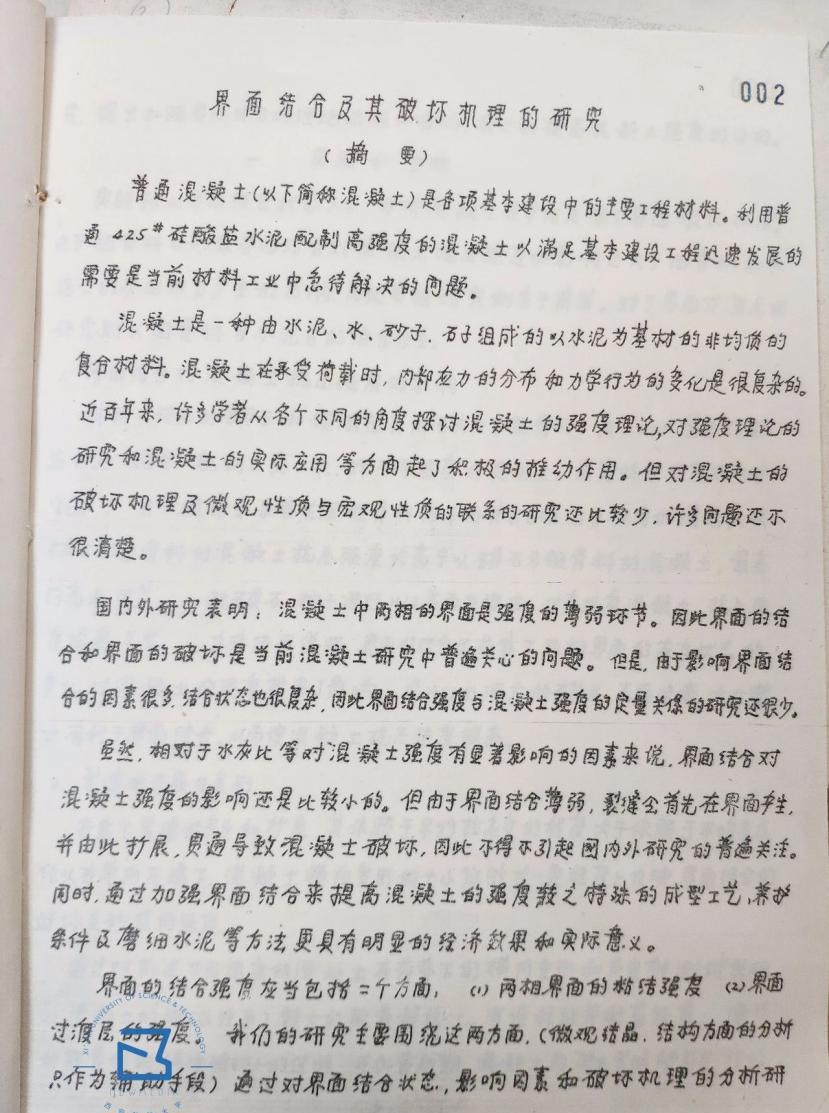 002
界面结合及其破坏机理的研究
(摘 要)
普通混凝土(以下简称混凝土)是各项基本建设中的主要工程材料。利用普
通425#硅酸盐水泥配制高强度的混凝土以满足基本建设工程迅速发展的
需要是当前材料工业中急待解决的问题。
混凝土是一种由水泥、水、砂子.石子组成的以水泥为基材的非均质的
复合材料。混凝土在承受荷载时,内部应力的分布和力学行为的变化是很复杂的。
近百年来,许多学者从各个不同的角度探讨混凝土的强度理论,对强度理论的
研究和混凝土的实际应用等方面起了积极的推动作用。但对混凝土的
破坏机理及微观性质与宏观性质的联系的研究还比较少,许多问题还不
很清楚。
国内外研究表明:混凝土中两相的界面是强度的薄弱环节。因此界面的结
合和界面的破坏是当前混凝土研究中普遍关心的问题。但是,由于影响界面结
合的因素很多,结合状态也很复杂,因此界面结合强度与混凝土强度的定量关系的研究还很少。
虽然,相对于水灰比等对混凝土强度有显著影响的因素来说,界面结合对
混凝土强度的影响还是比较小的。但由于界面结合薄弱,裂缝会首先在界面产生,
并由此扩展,贯通导致混凝土破坏,因此不得不引起国内外研究的普遍关注。
同时,通过加强界面结合来提高混凝土的强度较之特殊的成型工艺,养护
条件及磨细水泥等方法更具有明显的经济效果和实际意义。
界面的结合强度应当包括二个方面: (1)两相界面的粘结强度 (2)界面
过渡层的强度。 我们的研究主要围绕这两方面,(微观结晶.结构方面的分析
只作为辅助手段)通过对界面结合状态,影响因素和破坏机理的分析研
UNIVERSITY OF SCIENCE & TECHNOLOGY